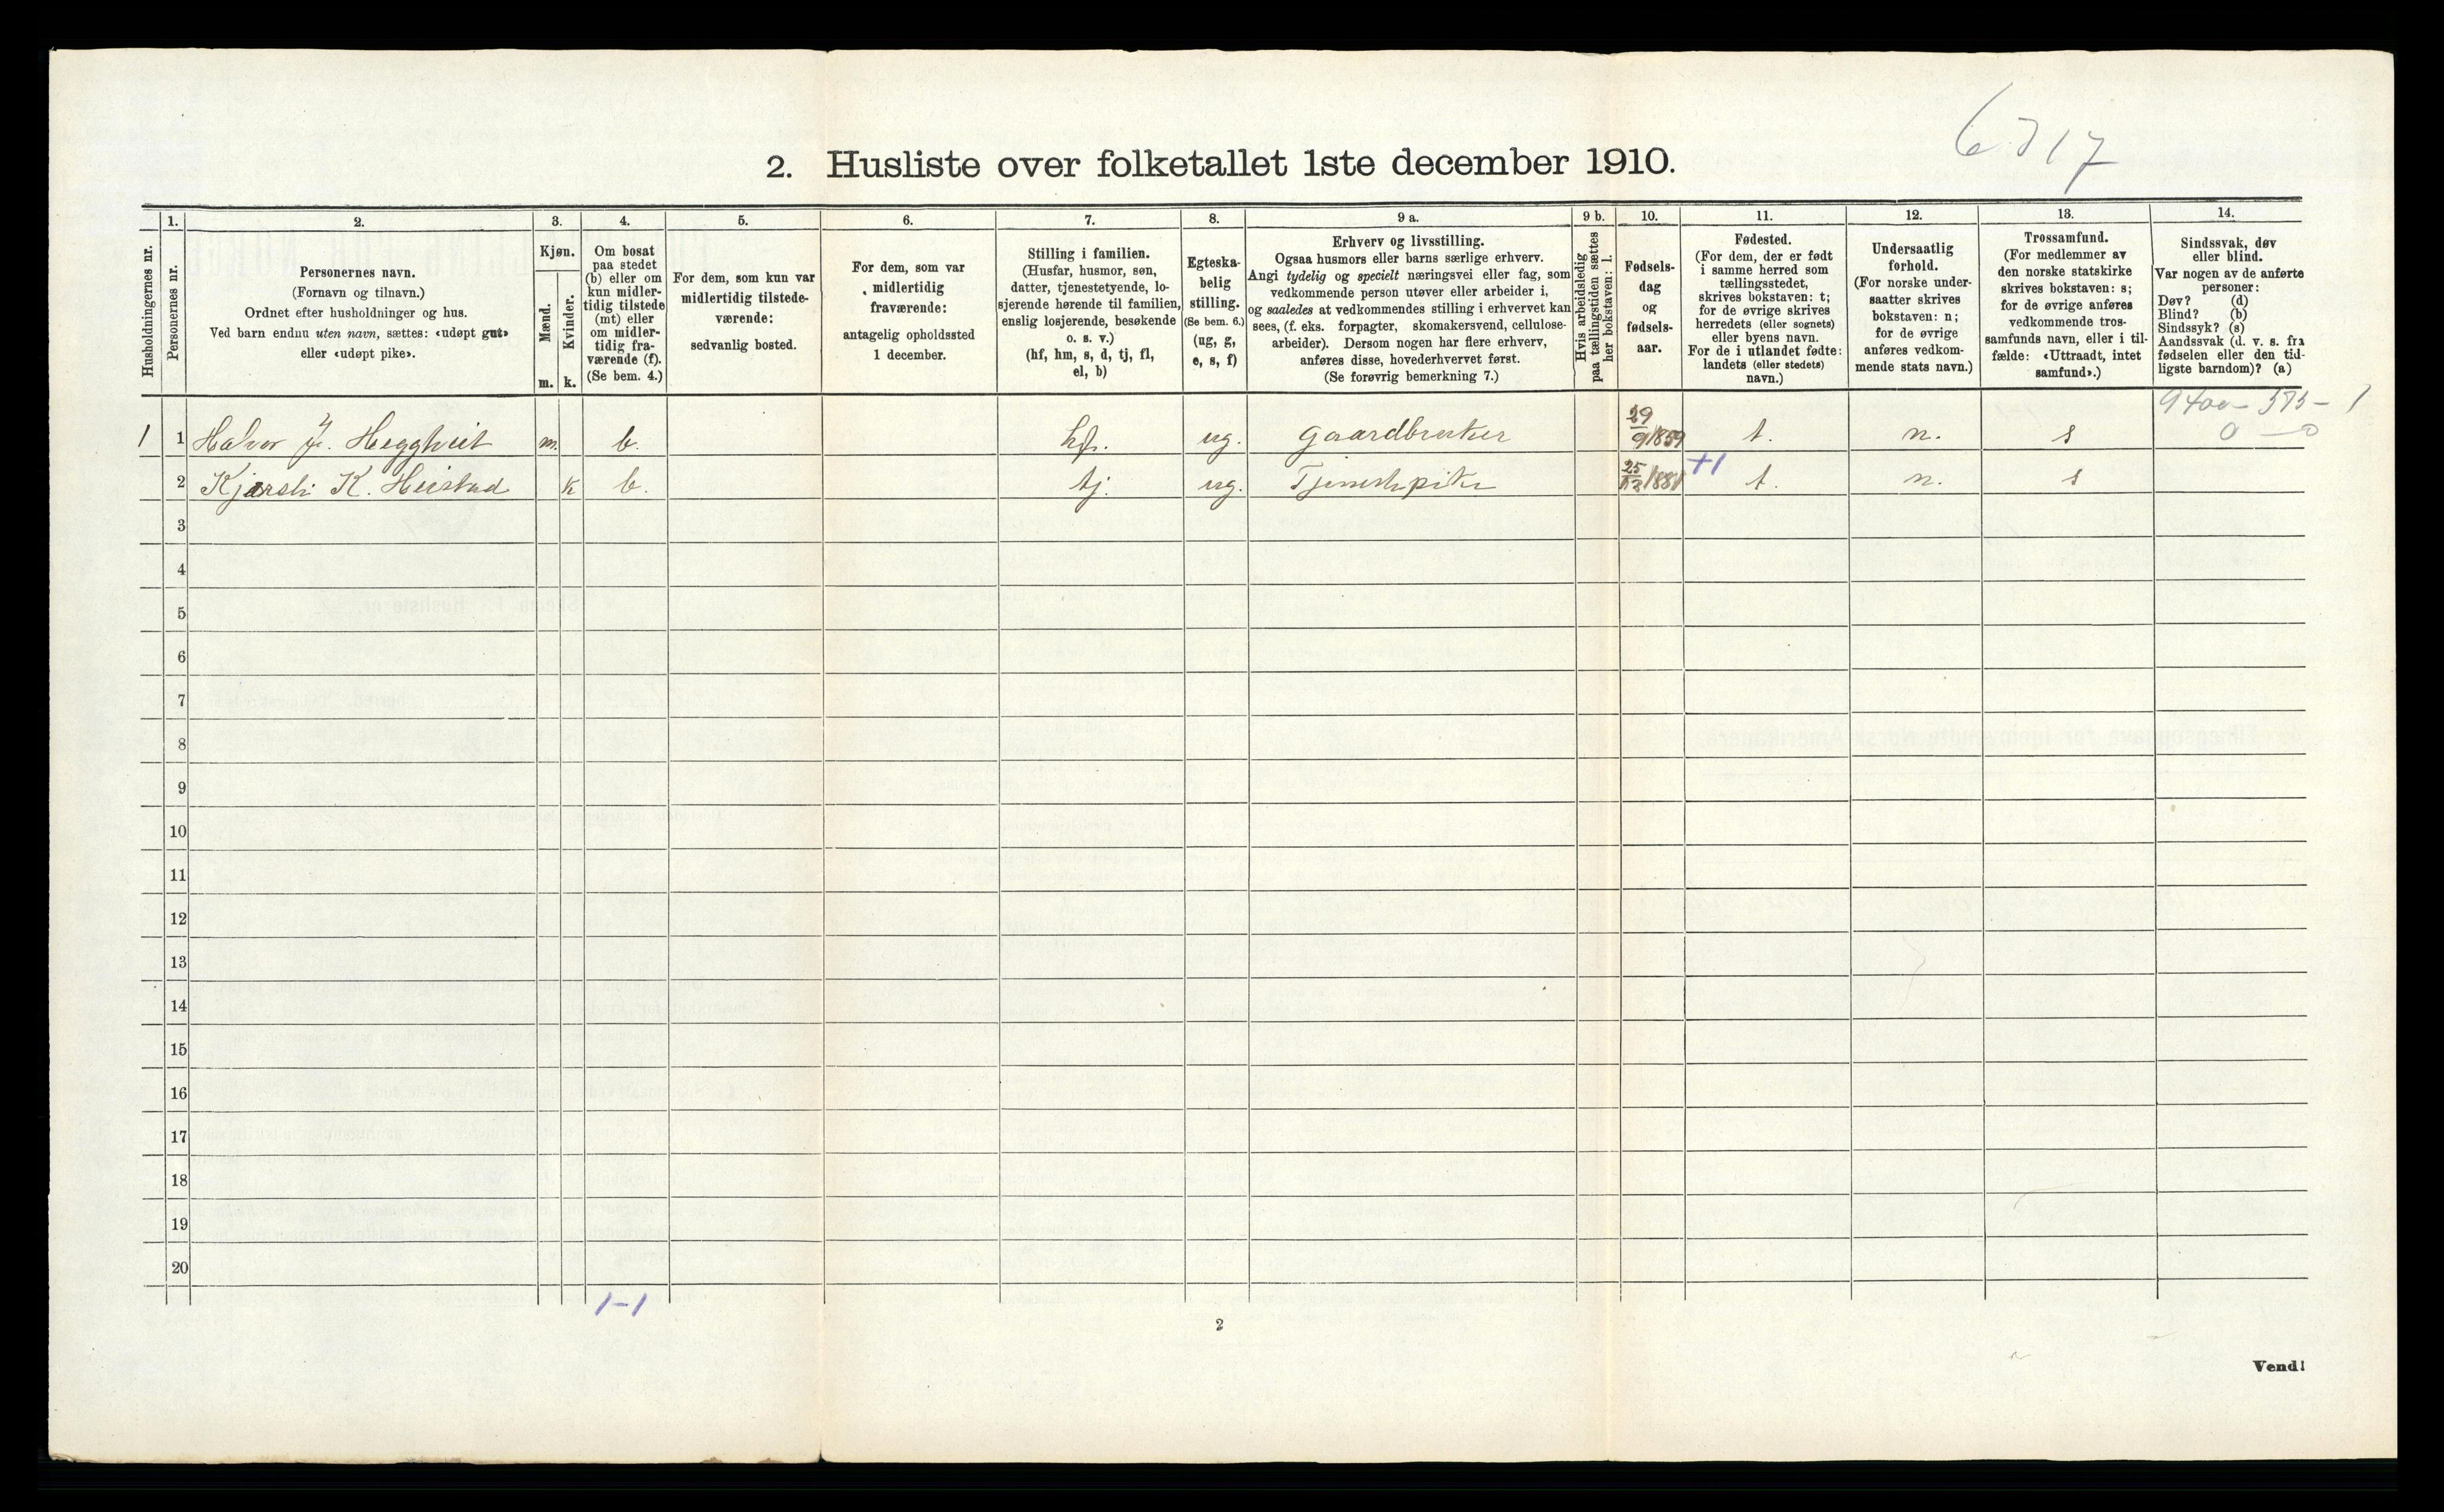 6717
2. Husliste over folketallet 1ste december 1910.
Husholdningernes nr.
1.
Personernes nr.
2.
Personernes navn.
(Fornavn og tilnavn.)
Ordnet efter husholdninger og hus.
Ved barn endnu uten navn, sættes: «udøpt gut»
eller «udøpt pike».
3.
Kjøn.
Mænd.
m.
Kvinder.
k.
4.
Om bosat
paa stedet
(b) eller om
kun midler-
tidig tilstede
(mt) eller
om midler-
tidig fra-
værende (f).
(Se bem. 4.)
5.
For dem, som kun var
midlertidig tilstede-
værende:
sedvanlig bosted.
6.
For dem, som var
midlertidig
fraværende:
antagelig opholdssted
1 december.
7.
Stilling i familien.
(Husfar, husmor, søn,
datter, tjenestetyende, lo-
sjerende hørende til familien,
enslig losjerende, besøkende
o. s. v.)
(hf, hm, s, d, tj, fl,
el, b)
8.
Egteska-
belig
stilling.
(Se bem. 6.)
(ug, g,
e, s, f)
9 a.
Erhverv og livsstilling.
Ogsaa husmors eller barns særlige erhverv.
Angi tydelig og specielt næringsvei eller fag, som
vedkommende person utøver eller arbeider i,
og saaledes at vedkommendes stilling i erhvervet kan
sees, (f. eks. forpagter, skomakersvend, cellulose-
arbeider). Dersom nogen har flere erhverv,
anføres disse, hovederhvervet først.
(Se forøvrig bemerkning 7.)
9 b.
Hvis arbeidsledig
paa tællingstiden sættes
her bokstaven: l.
10.
Fødsels-
dag
og
fødsels-
aar.
11.
Fødested.
(For dem, der er født
i samme herred som
tællingsstedet,
skrives bokstaven: t;
for de øvrige skrives
herredets (eller sognets)
eller byens navn.
For de i utlandet fødte:
landets (eller stedets)
navn.)
12.
Undersaatlig
forhold.
(For norske under-
saatter skrives
bokstaven: n;
for de øvrige
anføres vedkom-
mende stats navn.)
13.
Trossamfund.
(For medlemmer av
den norske statskirke
skrives bokstaven: s;
for de øvrige anføres
vedkommende tros-
samfunds navn, eller i til-
fælde: «Uttraadt, intet
samfund».)
14.
Sindssvak, døv
eller blind.
Var nogen av de anførte
personer:
Døv? (d)
Blind? (b)
Sindssyk? (s)
Aandssvak (d. v. s. fra
fødselen eller den tid-
ligste barndom)? (a)
9400 – 575 – 1
0 – 0
1 1 Halvor J. Hegghveit m. b. hf. ug. gaardbruker 29/9 1859 t. n. s
2 Kjersti K. Heistad k b. tj. ug. Tjenestepike 25/12 1881 +1 t. n. s
3
4
5
6
7
8
9
10
11
12
13
14
15
16
17
18
19
20
1-1
2
Vend!